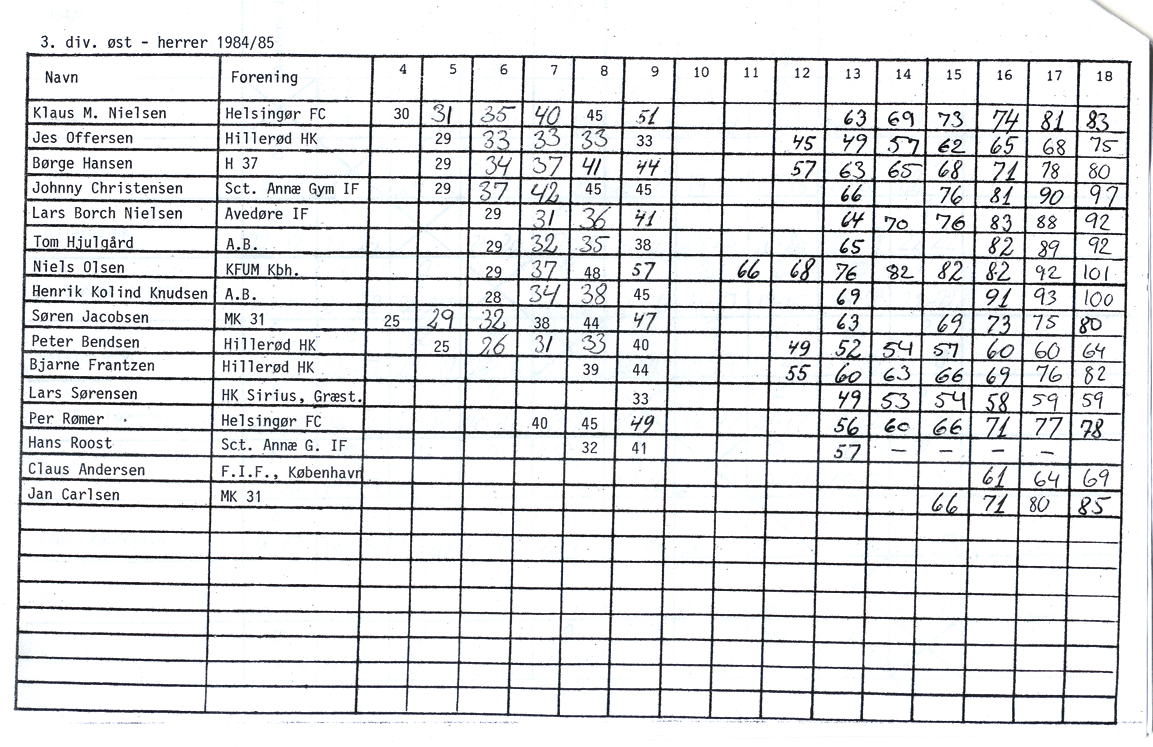 3. div. øst - herrer 1984/85
Navn Forening 4 5 6 7 8 9 10 11 12 13 14 15 16 17 18
Klaus M. Nielsen Helsingør FC 30 31 35 40 45 51 63 69 73 74 81 83
Jes Offersen Hillerød HK 29 33 33 33 33 45 49 57 62 65 68 75
Børge Hansen H 37 29 34 37 41 44 57 63 65 68 71 78 80
Johnny Christensen Sct. Annæ Gym IF 29 37 42 45 45 66 76 81 90 97
Lars Borch Nielsen Avedøre IF 29 31 36 41 64 70 76 83 88 92
Tom Hjulgård A.B. 29 32 35 38 65 82 89 92
Niels Olsen KFUM Kbh. 29 37 48 57 66 68 76 82 82 82 92 101
Henrik Kolind Knudsen A.B. 28 34 38 45 69 91 93 100
Søren Jacobsen MK 31 25 29 32 38 44 47 63 69 73 75 80
Peter Bendsen Hillerød HK 25 26 31 33 40 49 52 54 57 60 60 64
Bjarne Frantzen Hillerød HK 39 44 55 60 63 66 69 76 82
Lars Sørensen HK Sirius, Græst. 33 49 53 54 58 59 59
Per Rømer Helsingør FC 40 45 49 56 60 66 71 77 78
Hans Roost Sct. Annæ G. IF 32 41 57 — — — —
Claus Andersen F.I.F., København 61 64 69
Jan Carlsen MK 31 66 71 80 85